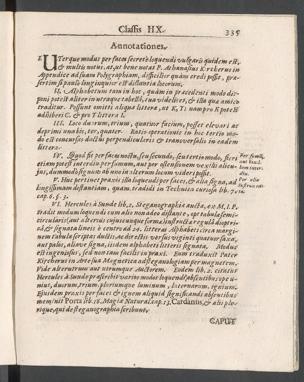 Classis IX.
335
Annotationes.
I. Uterque modus per faces secretò loquendi vulgaris quidem est,
& multis notus, at, ut bene notat P. Athanasius Kircherus in
Appendice ad suam Polygraphiam, difficilior quàm credi posset, præ-
sertim si paulò longinquior est distantia locorum.
II. Alphabetum tam in hoc, quàm in præcedenti modo dis-
poni potest aliter in utraque tabella, tua videlicet, & illa qua amico
traditur. Possunt omitti aliqua littera, at K, Y: nam pro K potest
adhiberi C, & pro Y littera I.
III. Loco duarum, trium, quatuor facium, posset elevari ac
deprimi una bis, ter, quater. Ratio operationis in hoc tertio mo-
do est concursus ductûs perpendicularis & transversalis in eadem
littera.
IV. Quod fit per faces noctu, fieri
etiam potest interdiu per fumum, aut per ostensionem vexilli alicu-
jus, dummodo signa ab uno in alterum locum videri possit.
Per fumũ,
aut vexil-
lum inter-
diu.
V. Huc pertinet praxis illa loquendi per faces, & alia signa, ad
longissimam distantiam, quam tradidi in Technica curiosa lib. 7.
cap. 6. §. 3.
VI. Hercules à Sunde lib. 2. Steganographiæ auctæ, ex M. I. P.
tradit modum loquendi cum aliis non adeo distante, ope tabulæ
circularis (aut alterius cujuscunque formæ) instructæ regulâ
& signata lineis è centro 24. litteras Alphabeti circa margi-
nem tabulæ scriptas ductis, ac directis versùs viginti quatuor faces,
aut palos, aliave signa, iisdem alphabeti litteris signata. Modus
est ingeniosus, sed non tam facilis in praxi. Eum tradidit Pater
Kircherus in Arte sua Magnetica ad steganologiam per magnetem.
Vide utrumvis aut utrumque Auctorem. Eodem lib. 2. citatus
Hercules à Sunde præscribit varios modos loquendi absentibus, ope u-
nius, duarum, trium, pluriumque luminum, lucernarum, ignium.
Ejusdem praxis per faces & ignem aliquid significandi absentibus
meminit Porta lib. 16. Magiæ Natural. cap. 13. Cardanus, & alii plu-
rique, qui de steganographia scribunt.
CAPUT